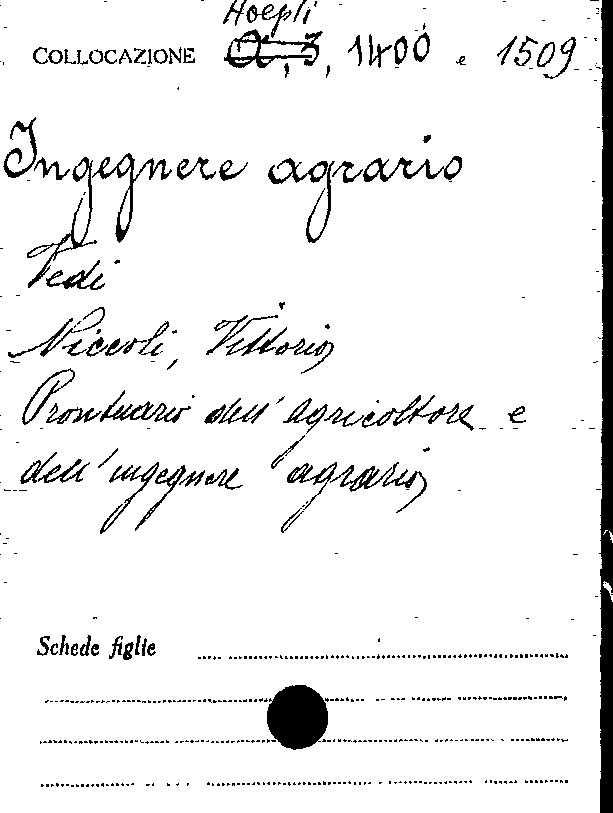 Hoepli
COLLOCAZIONE a, 3, 1400 e 1509
Ingegnere agrario
Vedi
Niccoli, Vittorio
Prontuario dell'agricoltore e
dell'ingegnere agrario
Schede figlie